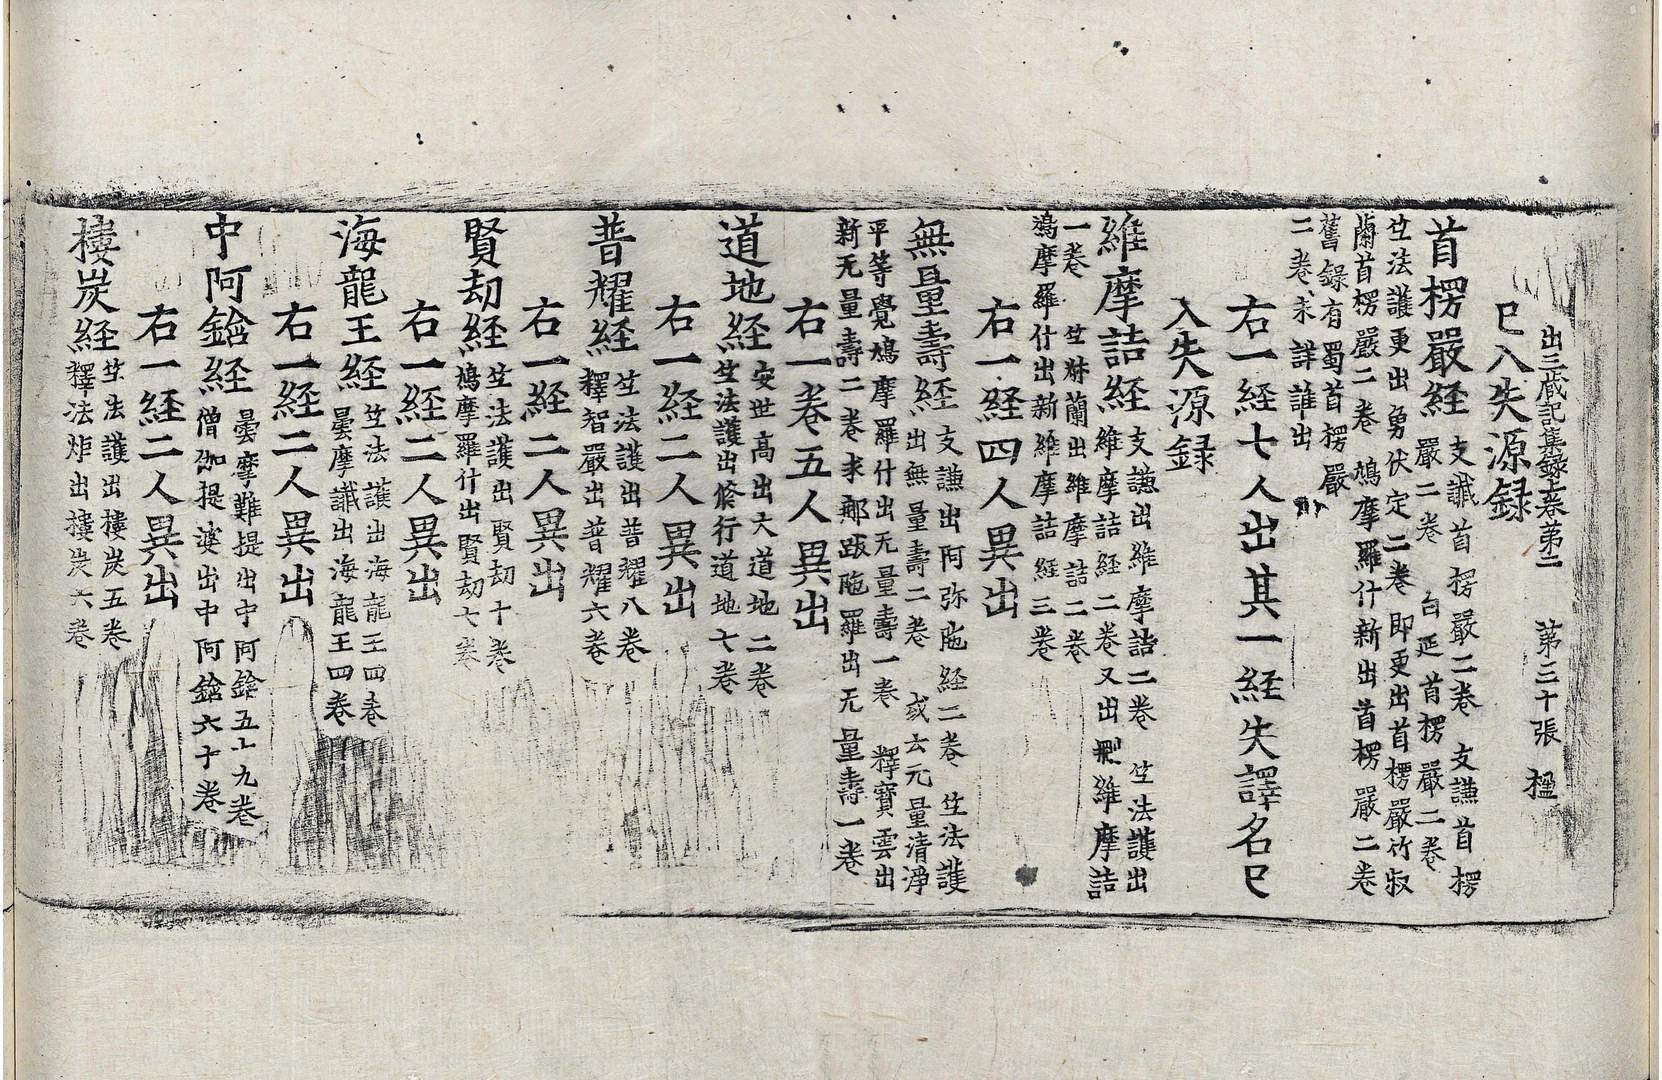 出三蔵記集録上巻第二　第三十張　楹
已入失源録
首楞嚴経
支讖首楞嚴二巻　支謙首楞
嚴二巻　白延首楞嚴二巻
竺法護更出勇伏定二巻即更出首楞嚴竹叔
蘭首楞嚴二巻　鳩摩羅什新出首楞嚴二巻
舊録有蜀首楞嚴
二巻未詳誰出
右一経七人出其一経失譯名已
入失源録
維摩詰経
支謙出維摩詰二巻　竺法護出
維摩詰経二巻又出刪維摩詰
一巻　竺叔蘭出維摩詰二巻
鳩摩羅什出新維摩詰経三巻
右一経四人異出
無量壽経
支謙出阿弥陁経二巻　竺法護
出無量壽二巻　或云无量清淨
平等覺鳩摩羅什出无量壽一巻　釋寶雲出
新无量壽二巻求那跋陁羅出无量壽一巻
右一巻五人異出
道地経
安世高出大道地二巻
竺法護出修行道地七巻
右一経二人異出
普耀経
竺法護出普耀八巻
釋智嚴出普耀六巻
右一経二人異出
賢劫経
竺法護出賢劫十巻
鳩摩羅什出賢劫七巻
右一経二人異出
海龍王経
竺法護出海龍王四巻
曇摩讖出海龍王四巻
右一経二人異出
中阿鋡経
曇摩難提出中阿鋡五十九巻
僧伽提婆出中阿鋡六十巻
右一経二人異出
樓炭経
竺法護出樓炭五巻
釋法炬出樓炭六巻